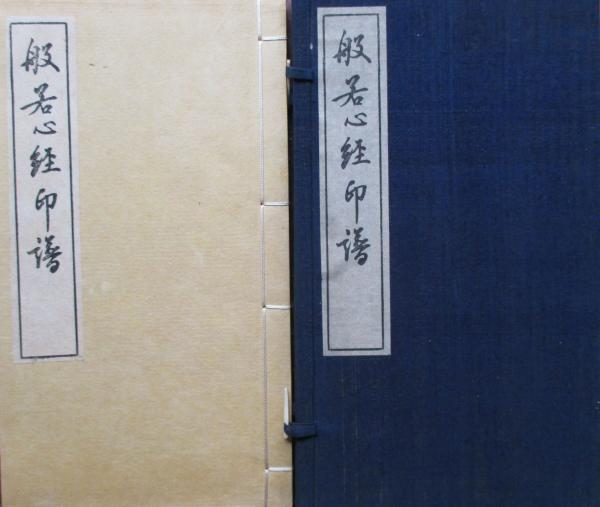 般若心経印譜
般若心経印譜